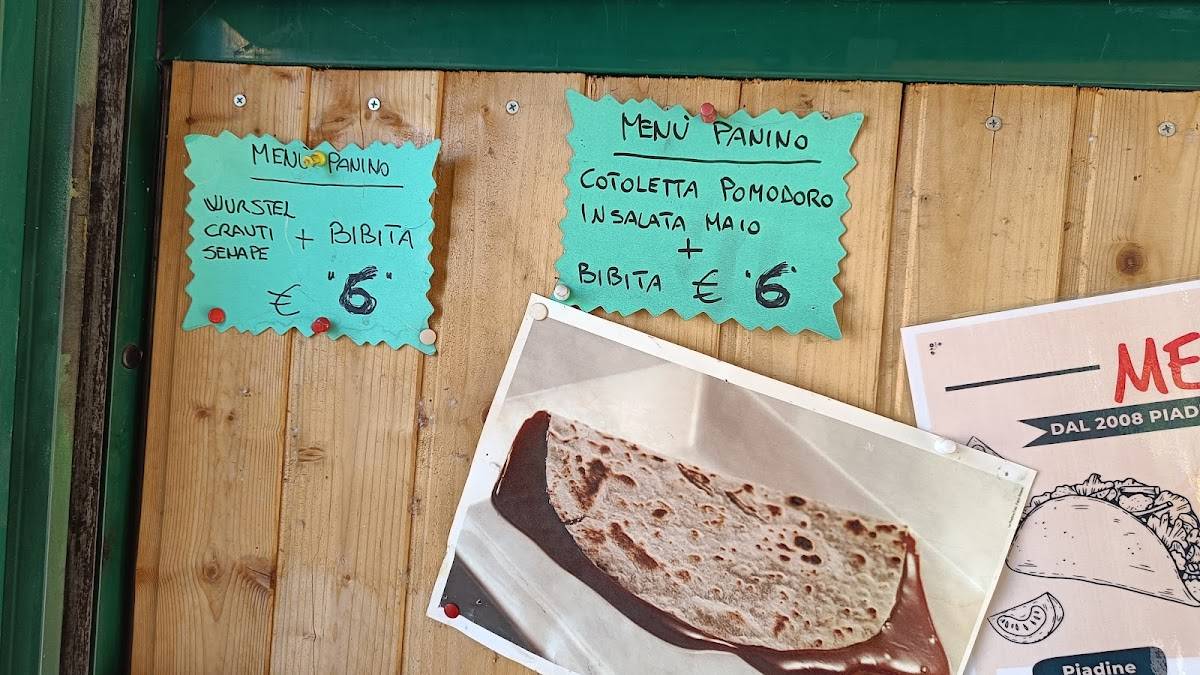 MENÙ PANINO
WURSTEL
CRAUTI + BIBITA
SENAPE
€ "6"
MENÙ PANINO
COTOLETTA POMODORO
INSALATA MAIO
+
BIBITA € "6"
ME
DAL 2008 PIAD
Piadine